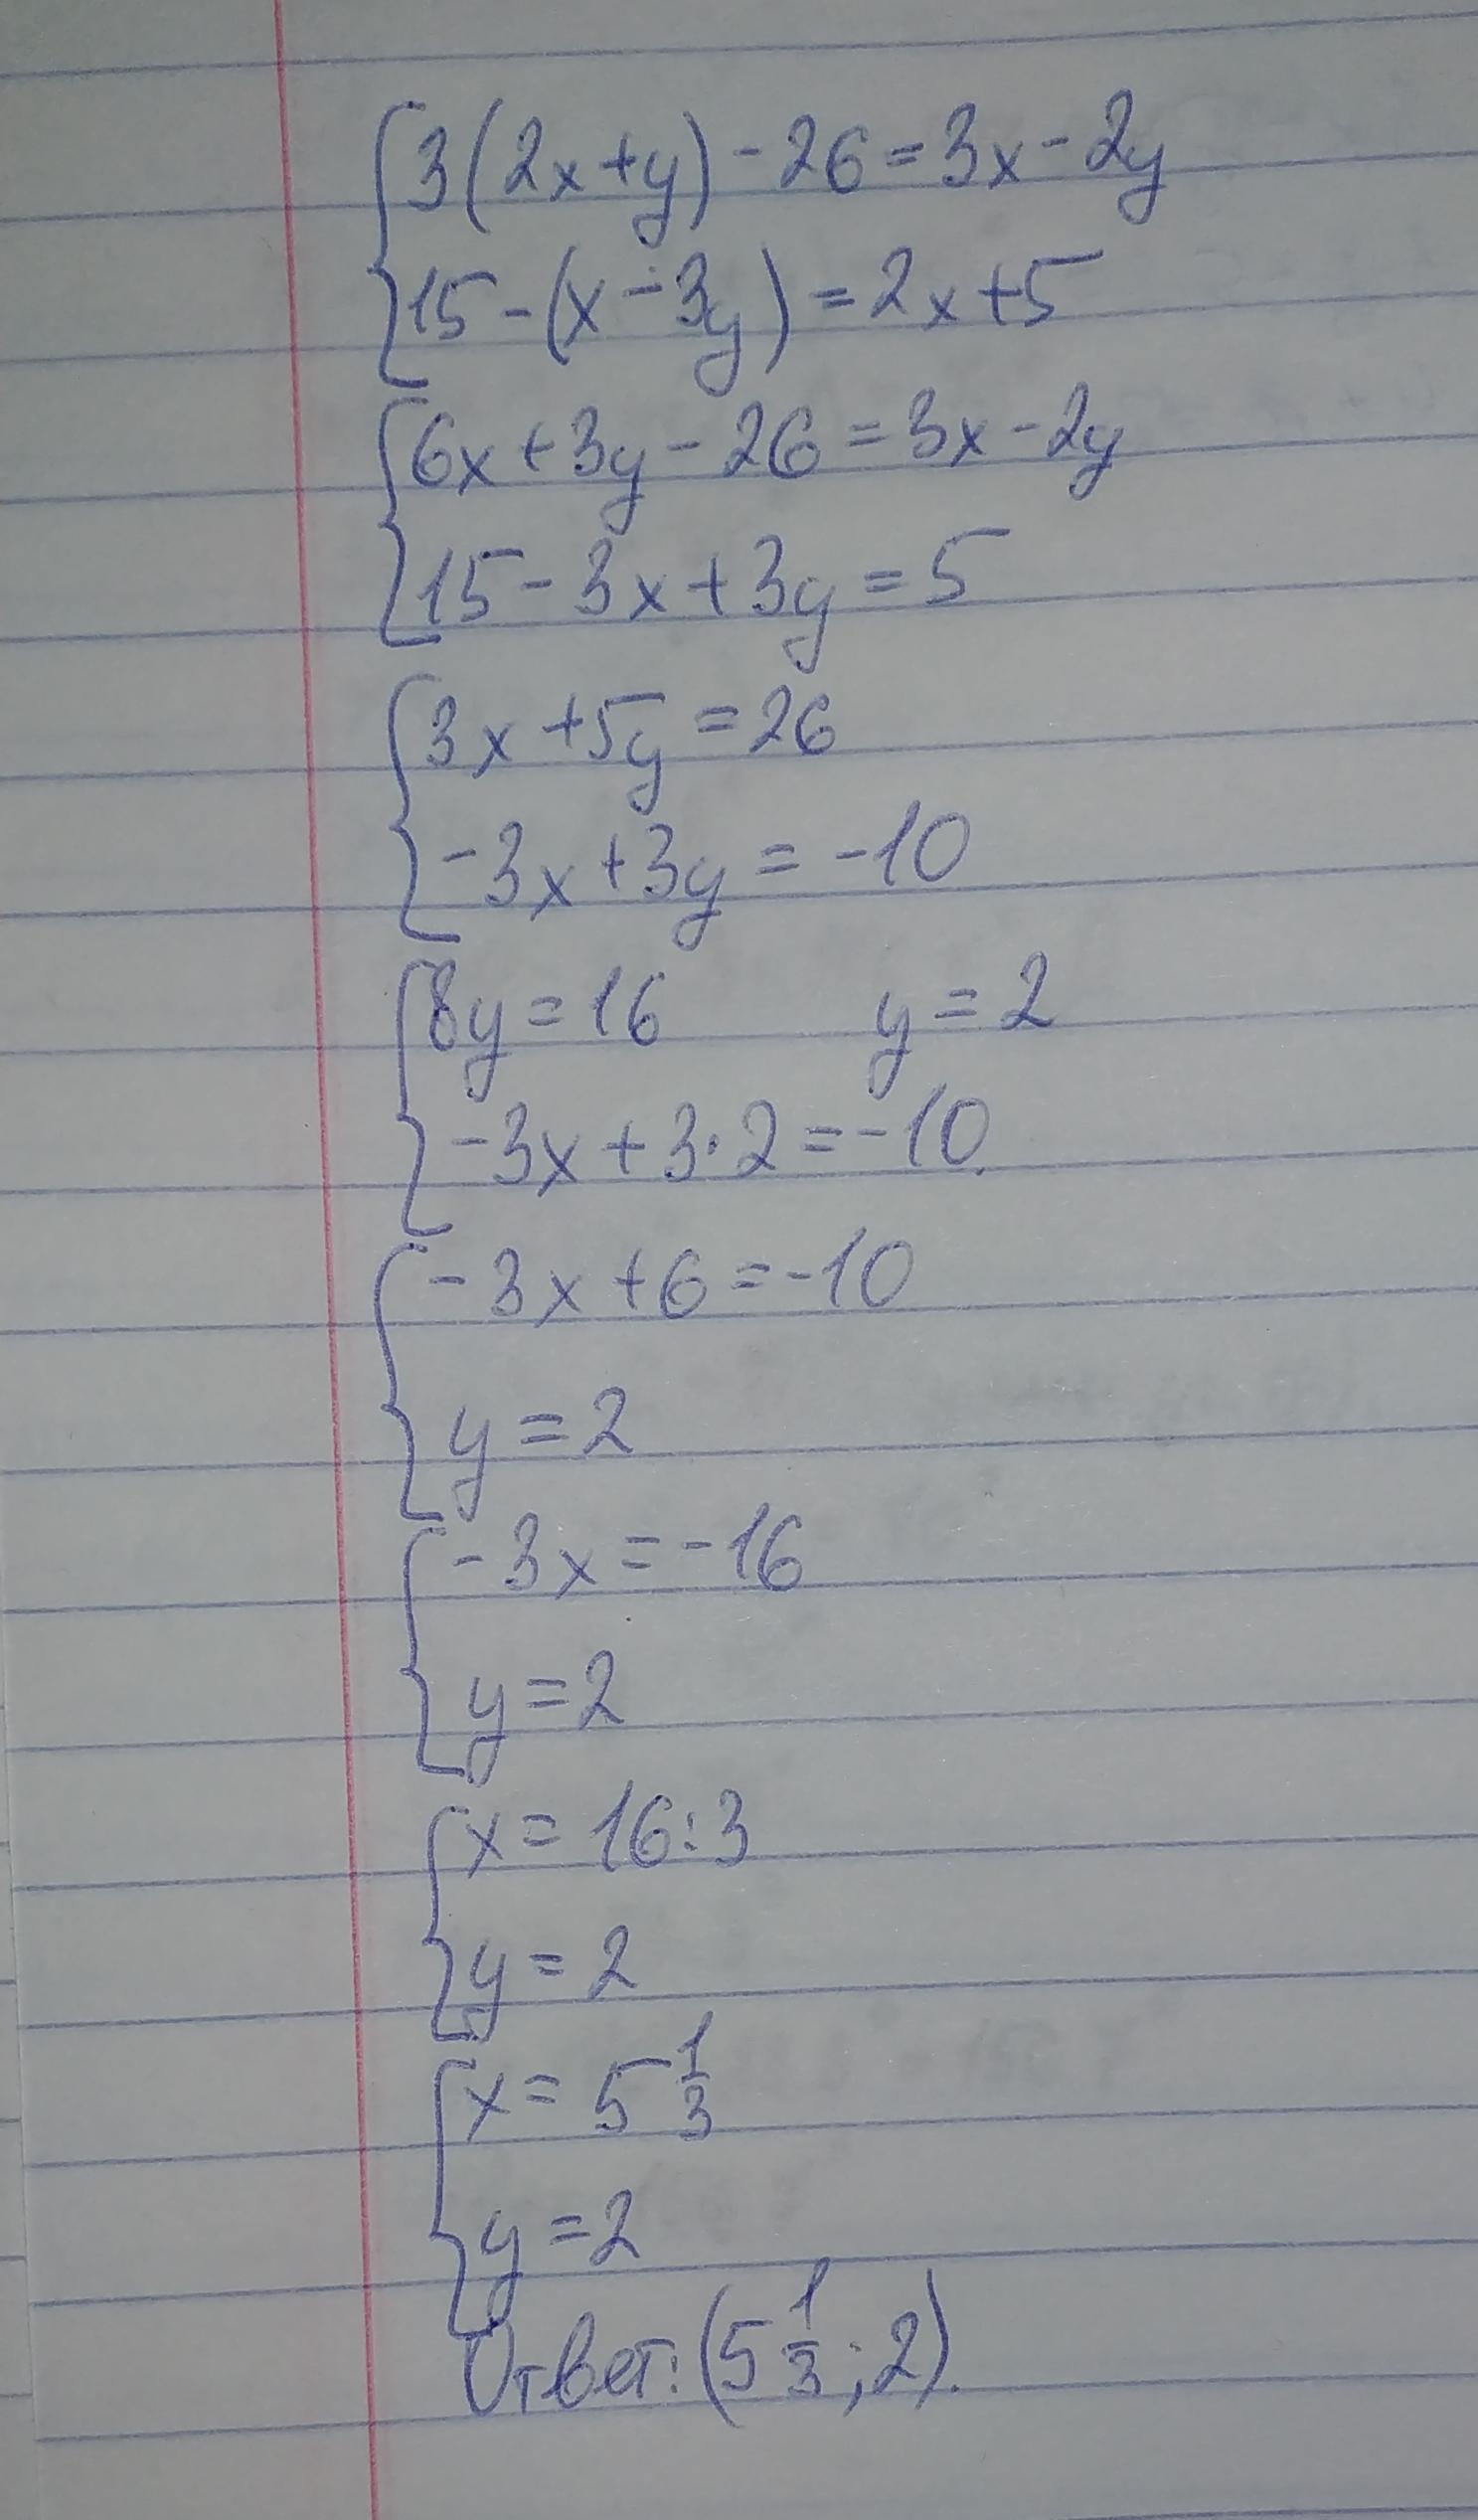 3(2x+y)-26=3x-2y
15-(x-3y)=2x+5
6x+3y-26=3x-2y
15-3x+3y=5
3x+5y=26
-3x+3y=-10
8y=16 y=2
-3x+3·2=-10
-3x+6=-10
y=2
-3x=-16
y=2
x=16:3
y=2
x=5 1/3
y=2
Ответ: (5 1/3; 2).